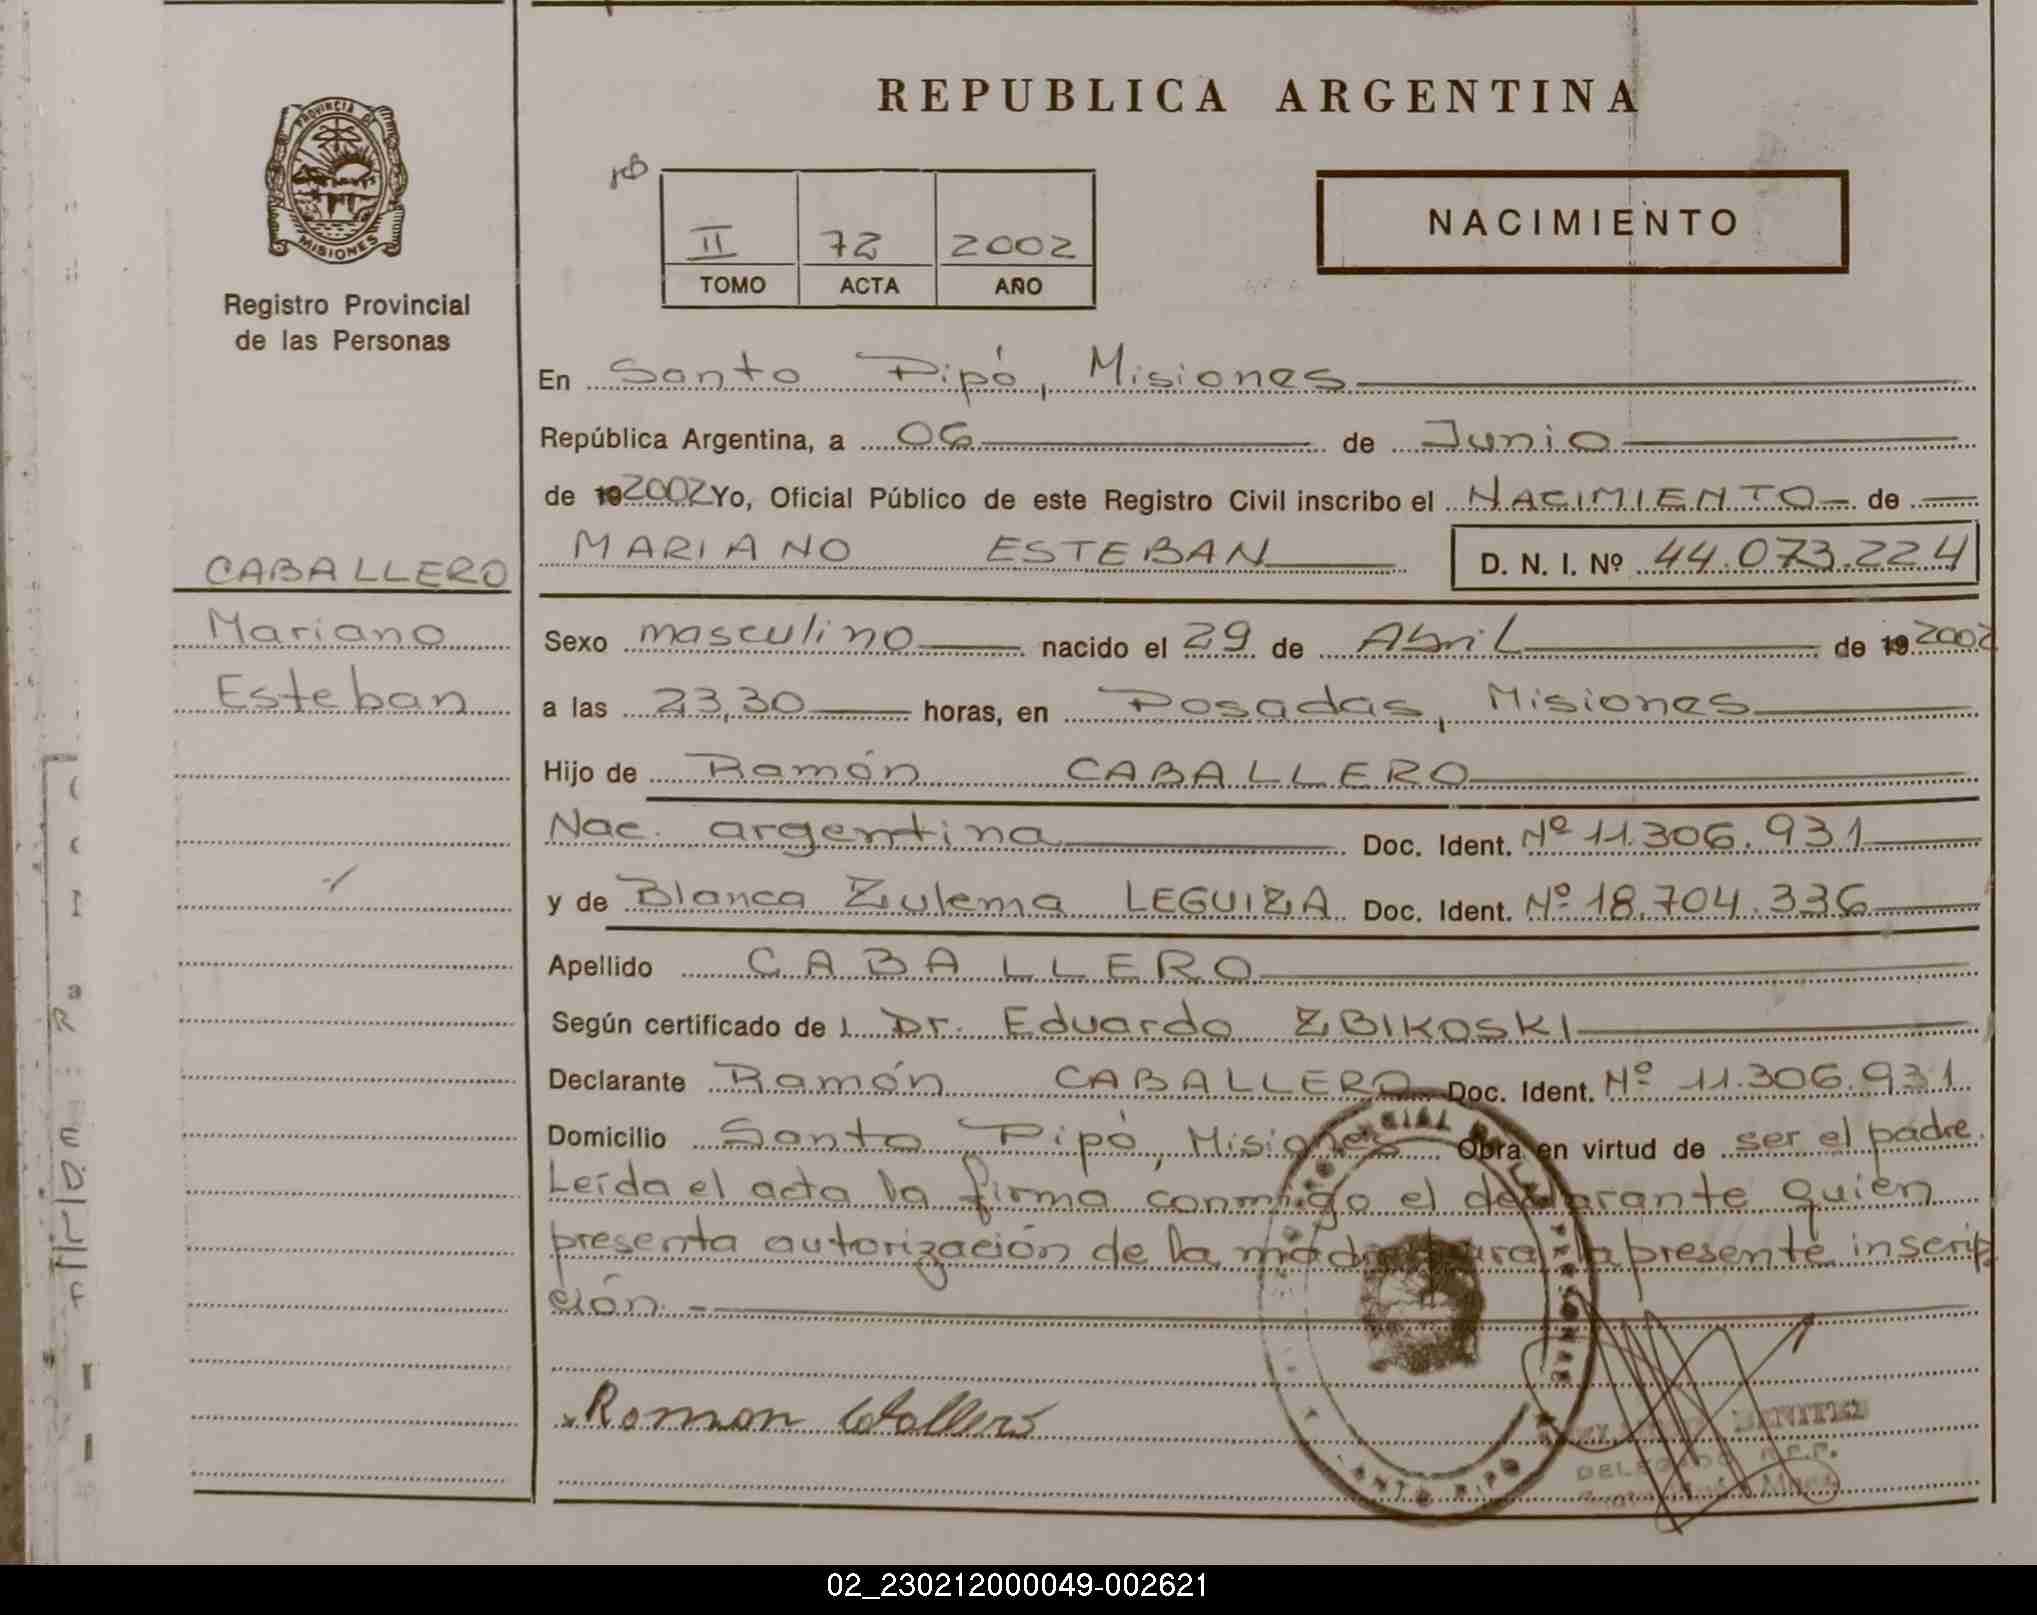 REPUBLICA ARGENTINA
PROVINCIA DE
MISIONES
Registro Provincial
de las Personas
II 72 2002
TOMO ACTA AÑO
NACIMIENTO
En Santo Pipó, Misiones
República Argentina, a 06 de Junio
de 19 2002 Yo, Oficial Público de este Registro Civil inscribo el NACIMIENTO de
MARIANO ESTEBAN D. N. I. Nº 44.073.224
CABALLERO
Mariano
Esteban
Sexo masculino nacido el 29 de Abril de 19 2002
a las 23,30 horas, en Posadas, Misiones
Hijo de Ramón CABALLERO
Nac. argentina Doc. Ident. Nº 11.306.931
y de Blanca Zulema LEGUIZA Doc. Ident. Nº 18.704.336
Apellido CABALLERO
Según certificado de l Dr. Eduardo ZBIKOSKI
Declarante Ramón CABALLERO Doc. Ident. Nº 11.306.931
Domicilio Santo Pipó, Misiones Obra en virtud de ser el padre.
Leída el acta la firma conmigo el declarante quien
presenta autorización de la madre para la presente inscrip
ción.-
Ramon Caballero
BENITEZ
DELEGADO R.C.P.
02_230212000049-002621